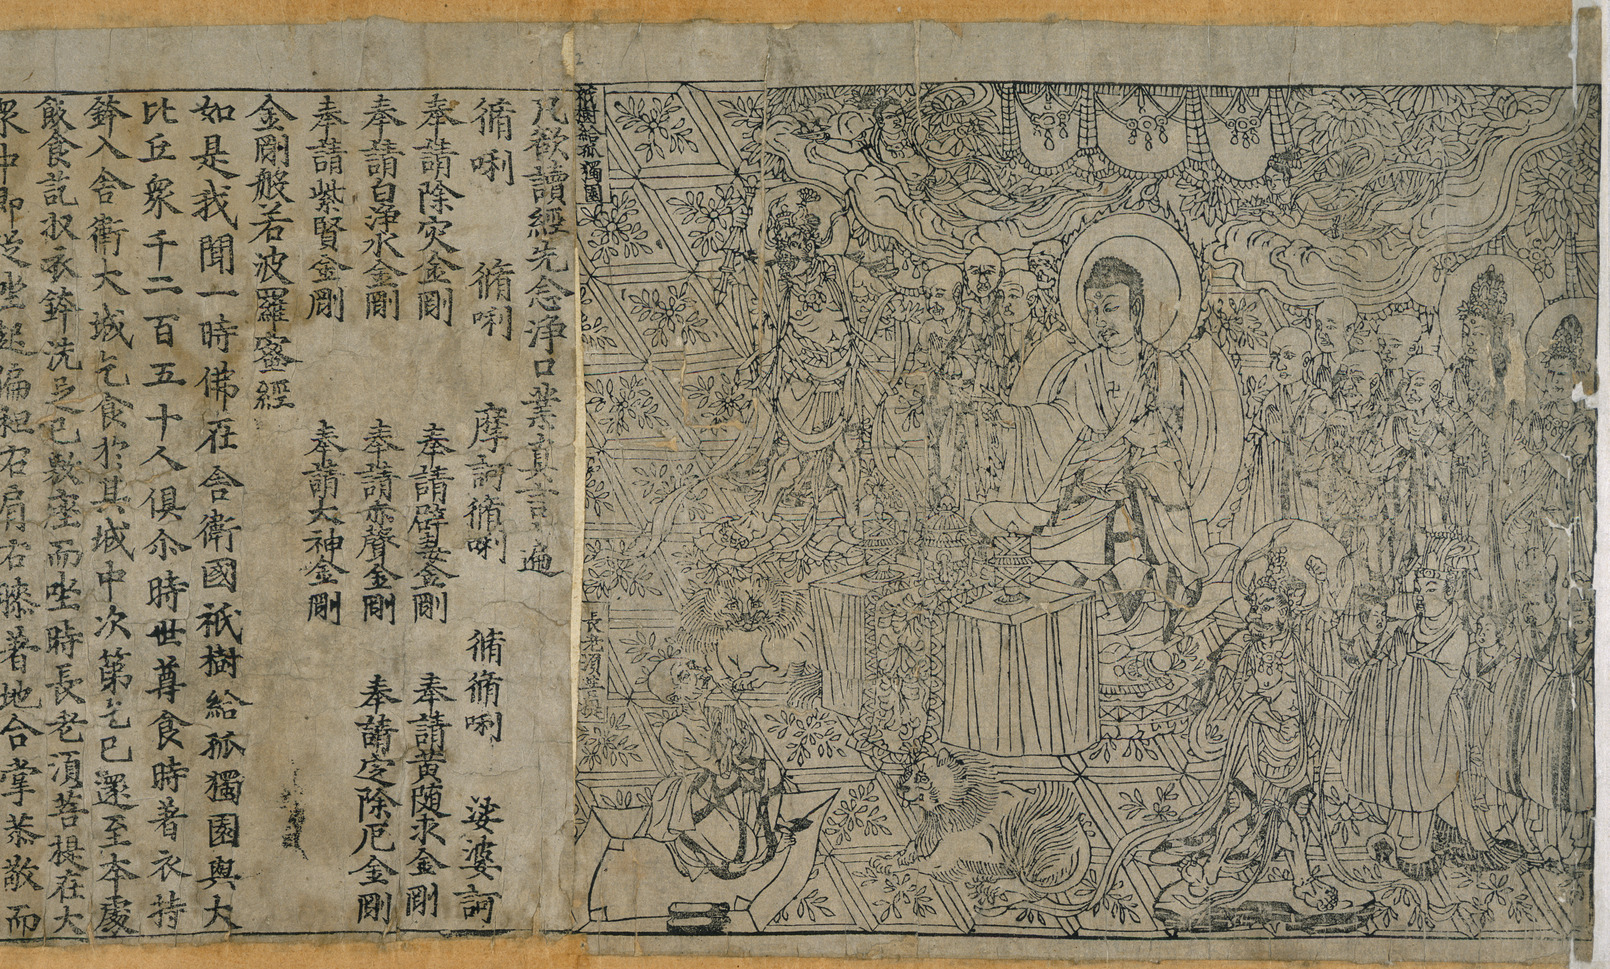 祇樹給孤獨園
長老須菩提
凡欲讀經先念淨口業真言一遍
脩唎 脩唎 摩訶脩唎 脩脩唎 娑婆訶
奉請除灾金剛 奉請辟毒金剛 奉請黄随求金剛
奉請白淨水金剛 奉請赤聲金剛 奉請定除厄金剛
奉請紫賢金剛 奉請大神金剛
金剛般若波羅蜜經
如是我聞一時佛在舍衛國祇樹給孤獨園與大
比丘衆千二百五十人俱尒時世尊食時著衣持
鉢入舍衛大城乞食於其城中次第乞已還至本處
飯食訖收衣鉢洗足已敷座而坐時長老湏菩提在大
衆中即從坐起偏袒右肩右膝著地合掌恭敬而